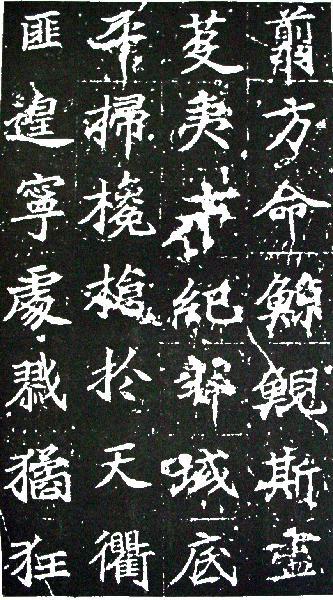 翦方命鯨鯢斯盡
芟夷紀域底
平掃欃槍於天衢
匪遑寧處戮猶狂